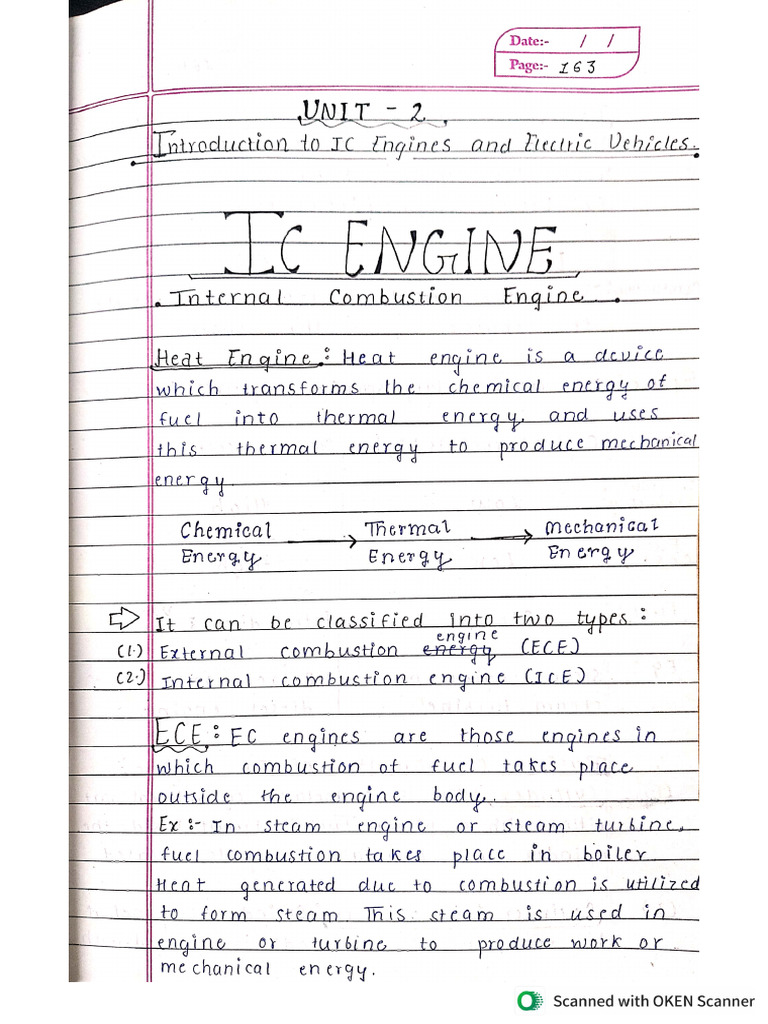 Date:- / /
Page:- 163
UNIT - 2
Introduction to IC Engines and Electric Vehicles.
IC ENGINE
Internal Combustion Engine
Heat Engine : Heat engine is a device
which transforms the chemical energy of
fuel into thermal energy, and uses
this thermal energy to produce mechanical
energy.
Chemical Energy → Thermal Energy → Mechanical Energy
⇒ It can be classified into two types :
(1.) External combustion energy engine (ECE)
(2.) Internal combustion engine (ICE)
ECE : EC engines are those engines in
which combustion of fuel takes place
outside the engine body.
Ex :- In steam engine or steam turbine,
fuel combustion takes place in boiler
Heat generated due to combustion is utilized
to form steam. This steam is used in
engine or turbine to produce work or
mechanical energy.
Scanned with OKEN Scanner